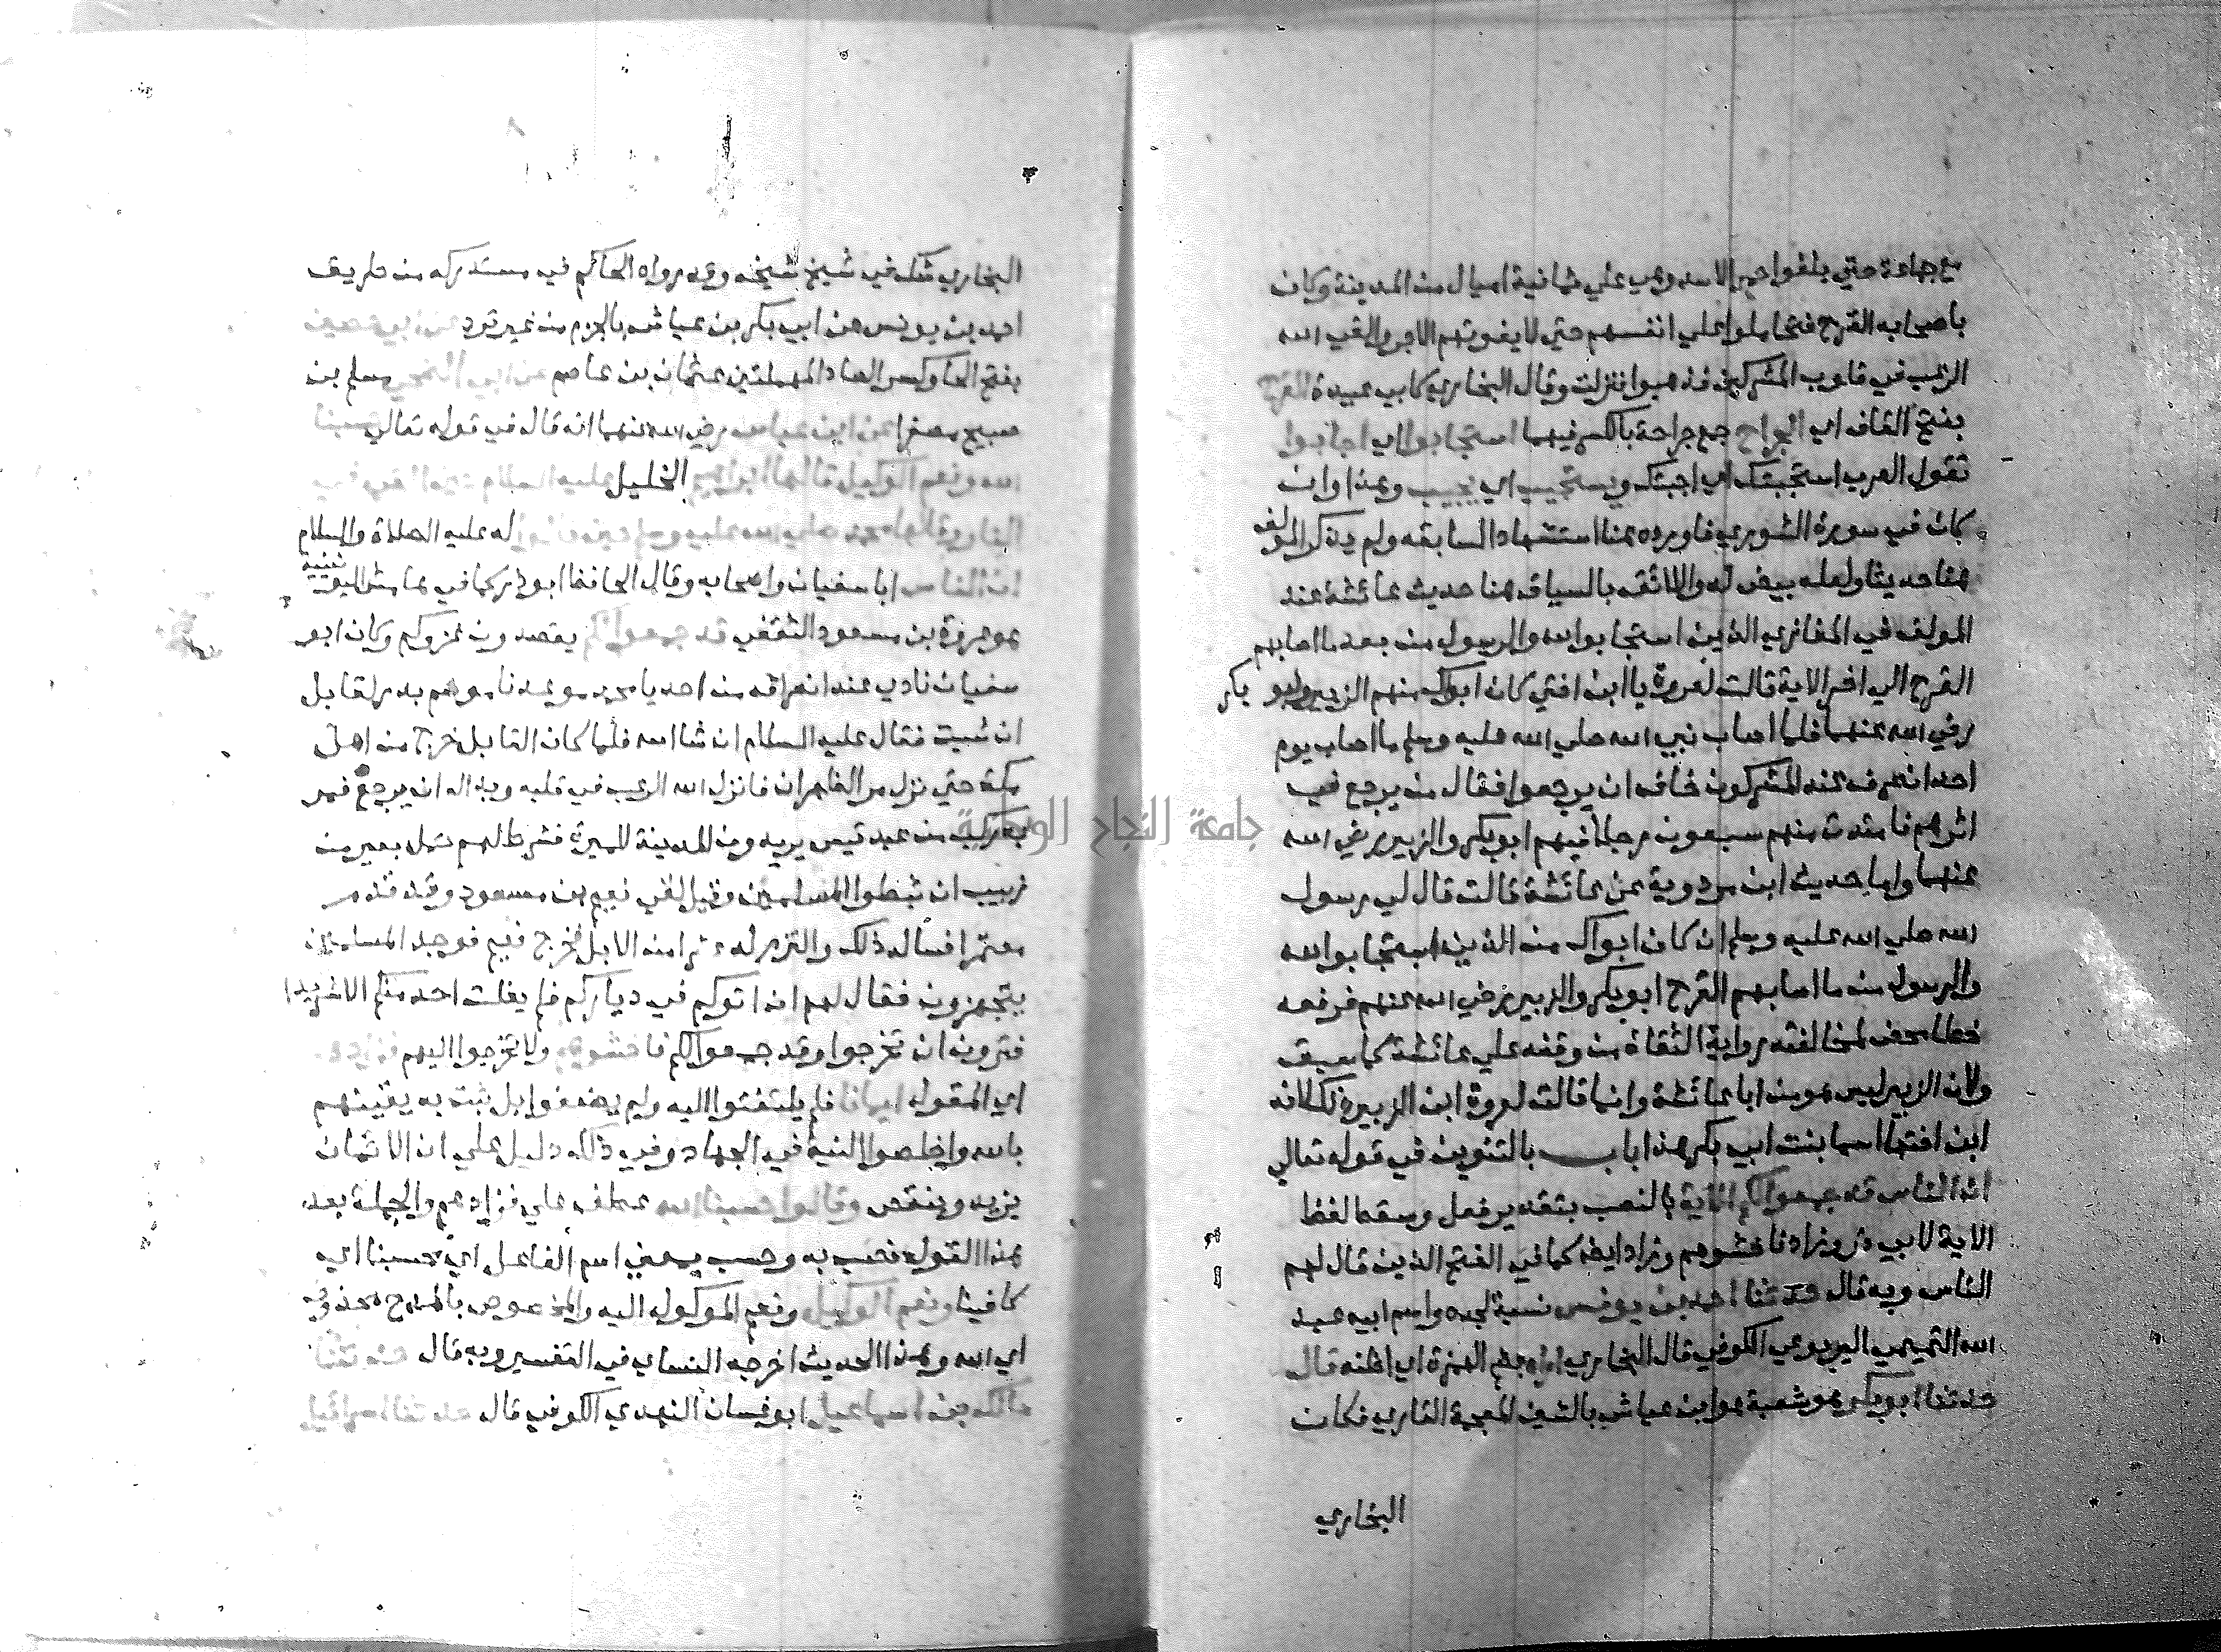 مع جماعة حتي بلغوا حمرا الاسد وهي علي ثمانية اميال من المدينة وكان
باصحابه القرح فتحاملوا علي انفسهم حتي لا يفوتهم الاجر والقي الله
الرعب في قلوب المشركين فذهبوا فنزلت وقال البخاري كابي عبيدة القرح
بفتح القاف اي الجراح جمع جراحة بالكسر فيهما استجابوا اي اجابوا
تقول العرب استجبتك اي اجبتك ويستجيب اي يجيب وهذا وان
كان في سورة الشوري فاورده هنا استشهادا لسابقه ولم يذكر المولف
هنا حديثا ولعله بيض له واللائق بالسياق هنا حديث عائشة عند
المولف في المغازي الذين استجابوا لله والرسول من بعد ما اصابهم
القرح الي اخر الاية قالت لعروة يا ابن اختي كان ابوك منهم الزبير وابو بكر
رضي الله عنهما فلما اصاب نبي الله صلي الله عليه وسلم ما اصاب يوم
احد انصرف عنه المشركون خاف ان يرجعوا فقال من يرجع في
اثرهم فانتدب منهم سبعون رجلا فيهم ابو بكر والزبير رضي الله
عنهما واما حديث ابن مردوية عن عائشة قالت قال لي رسول
الله صلي الله عليه وسلم ان كان ابواك من الذين استجابوا لله
والرسول من ما اصابهم القرح ابو بكر والزبير رضي الله عنهم فرفعه
خطا محض لمخالفته رواية الثقاة من وقفه علي عائشة كما سبق
ولان الزبير ليس هو من ابا عائشة وانما قالت لعروة ابن الزبير ذلك لانه
ابن اختها اسما بنت ابي بكر هذا باب بالتنوين في قوله تعالي
ان الناس قد جمعوا لكم الاية بالنصب بتقدير فعل وسقط لفظ
الاية لابي ذر وزاد فاخشوهم وزاد ايضا كما في الفتح الذين قال لهم
الناس وبه قال حدثنا احمد بن يونس نسبة لجده واسم ابيه عبد
الله التميمي اليربوعي الكوفي قال البخاري اراه بضم الهمزة اي اظنه قال
حدثنا ابو بكر هو شعبة هو ابن عياش بالشين المعجمة القاري فكان
البخاري
البخاري شك في شيخ شيخه وقد رواه الحاكم في مستدركه من طريق
احمد بن يونس عن ابي بكر بن عياش بالجزم من غير تردد عن ابي حصين
بفتح الحا وكسر الصاد المهملتين عثمان بن عاصم عن ابي الضحي مسلم بن
صبيح مصغرا عن ابن عباس رضي الله عنهما انه قال في قوله تعالي حسبنا
الله ونعم الوكيل قالها ابراهيم الخليل عليه السلام حين القي في
النار وقالها محمد صلي الله عليه وسلم حين قالوا له عليه الصلاة والسلام
ان الناس ابا سفيان واصحابه وقال الحافظ ابو ذر كما في هامش اليونينية
هو عروة بن مسعود الثقفي قد جمعوا لكم يقصدون غزوكم وكان ابو
سفيان نادي عند انصرافه من احد يا محمد موعدنا موسم بدر لقابل
ان شيت فقال عليه السلام ان شا الله فلما كان القابل خرج من اهل
مكة حتي نزل مر الظهران فانزل الله الرعب في قلبه وبدا له ان يرجع فمر
به ركب من عبد قيس يريدون المدينة للميرة فشرط لهم حمل بعير من
زبيب ان ثبطوا المسلمين وقيل لقي نعيم بن مسعود وقد قدم
معتمرا فساله ذلك والتزم له عشرا من الابل فخرج نعيم فوجد المسلمين
يتجهزون فقال لهم ان اتوكم في دياركم فلم يفلت احد منكم الا شريدا
فترون ان تخرجوا وقد جمعوا لكم فاخشوهم ولا تخرجوا اليهم فزادهم
اي المقول ايمانا فلم يلتفتوا اليه ولم يضعفوا بل ثبت به يقينهم
بالله واخلصوا النية في الجهاد وفي ذلك دليل علي ان الايمان
يزيد وينقص وقالوا حسبنا الله عطف علي فزادهم والجملة بعد
هذا القول نصب به وحسب بمعني اسم الفاعل اي محسبنا اي
كافينا ونعم الوكيل ونعم الموكول اليه والمخصوص بالمدح محذوف
اي الله وهذا الحديث اخرجه النساي في التفسير وبه قال حدثنا
مالك بن اسماعيل ابو غسان النهدي الكوفي قال حدثنا اسرائيل
جامعة النجاح الوطنية